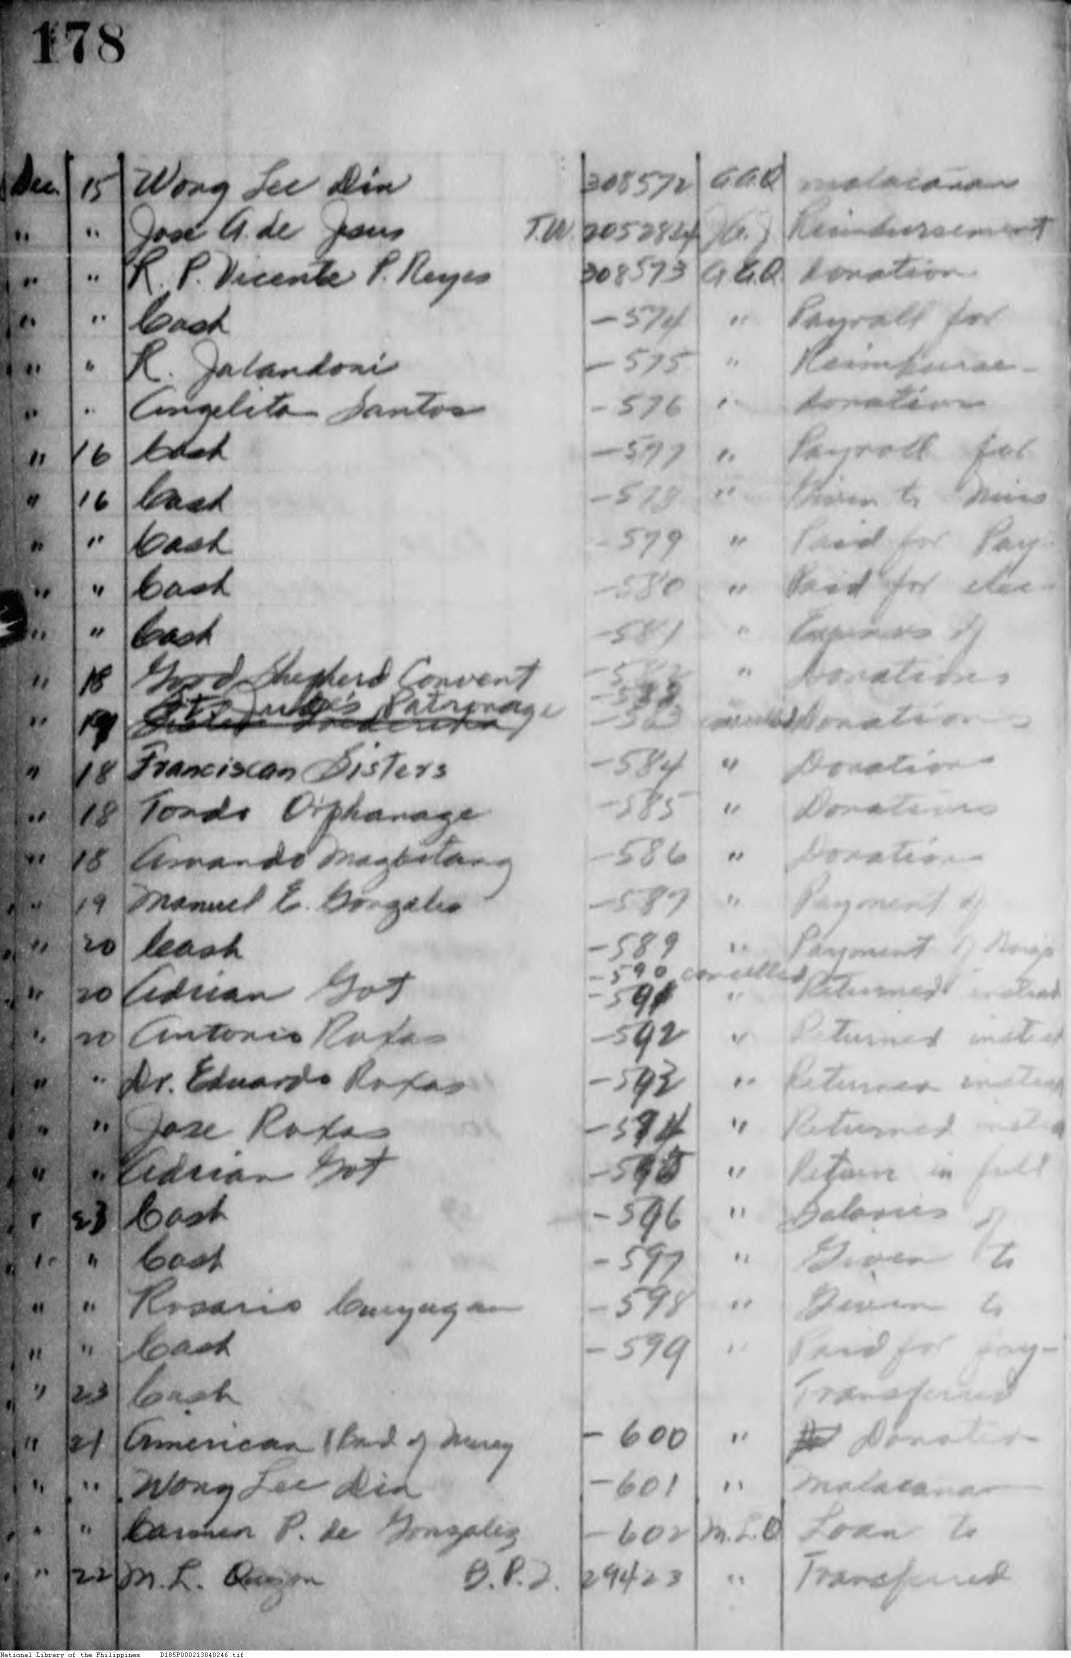 178
Dec. 15 Wong Lee Din 308572 A.A.Q malacañan
" " Jose A. de Jesus T.W. 205284 J.A.J Reimbursement
" " R. P. Vicente P. Reyes 308573 A.A.Q. Donation
" " Cash -574 " Payroll for
" " R. Jalandoni -575 " Reimburse-
" " Angelita Santos -576 " Donation
" 16 Cash -577 " Payroll for
" 16 Cash -578 " Given to Miss
" " Cash -579 " Paid for Pay-
" " Cash -580 " Paid for elec-
" " Cash -581 " Expenses of
" 18 Good Shepherd Convent -582 " Donations
Patronage
" 19 -583 cancelled Donations
" 18 Franciscan Sisters -584 " Donation
" 18 Tondo Orphanage -585 " Donations
" 18 Amando Magbitang -586 " Donation
" 19 Manuel E. Gonzales -587 " Payment of
" 20 Cash -589 " Payment of
-590 cancelled
" 20 Adrian Got -591 " Returned instead
" 20 Antonio Roxas -592 " Returned instead
" " Dr. Eduardo Roxas -593 " Returned instead
" " Jose Roxas -594 " Returned instead
" " Adrian Got -595 " Return in full
" 23 Cash -596 " Salaries of
" " Cash -597 " Given to
" " Rosario Cunyugan -598 " Given to
" " Cash -599 " Paid for pay-
" 23 Cash Transferred
" 21 American Bud of Mercy -600 " Donation
" " Wong Lee Din -601 " malacañan
" " Carmen P. de Gonzalez -602 M.L.Q Loan to
" 22 M. L. Quezon B.P.I. 29423 " Transferred
National Library of the Philippines D185P000213840246.tif